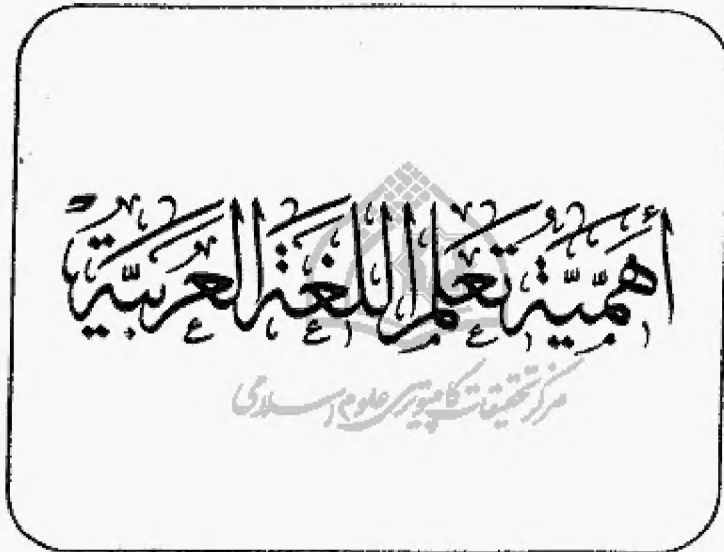 أهمّيّة تعلم اللغة العربيّة
مرکز تحقیقات کامپیوتری علوم اسلامی